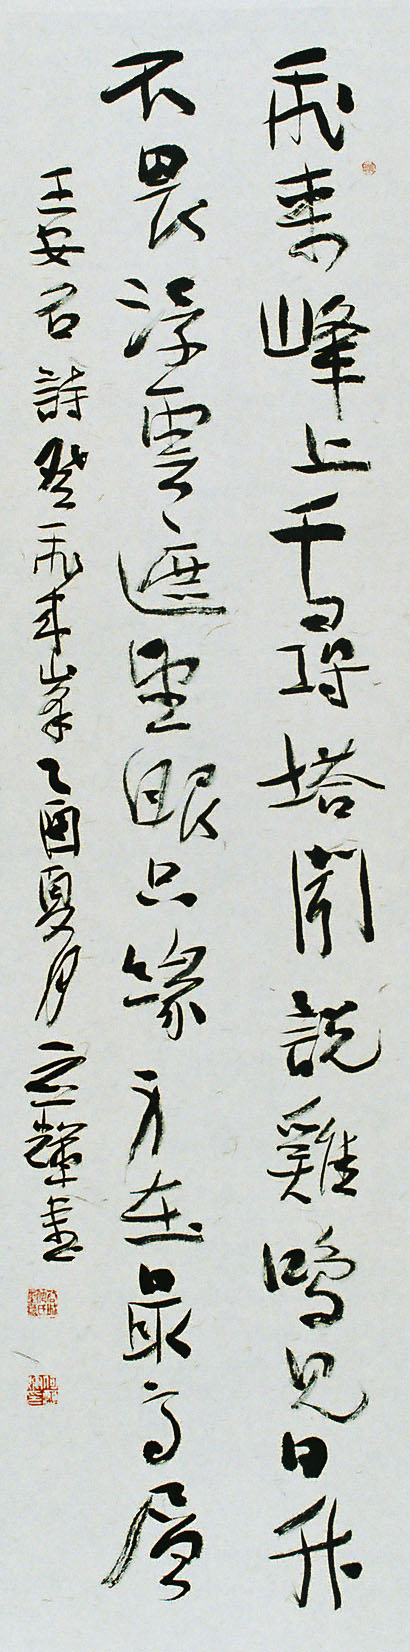 飛來峰上千尋塔聞說雞鳴見日升
不畏浮雲遮望眼只緣身在最高層
王安石詩登飛來峯乙酉夏月輝書